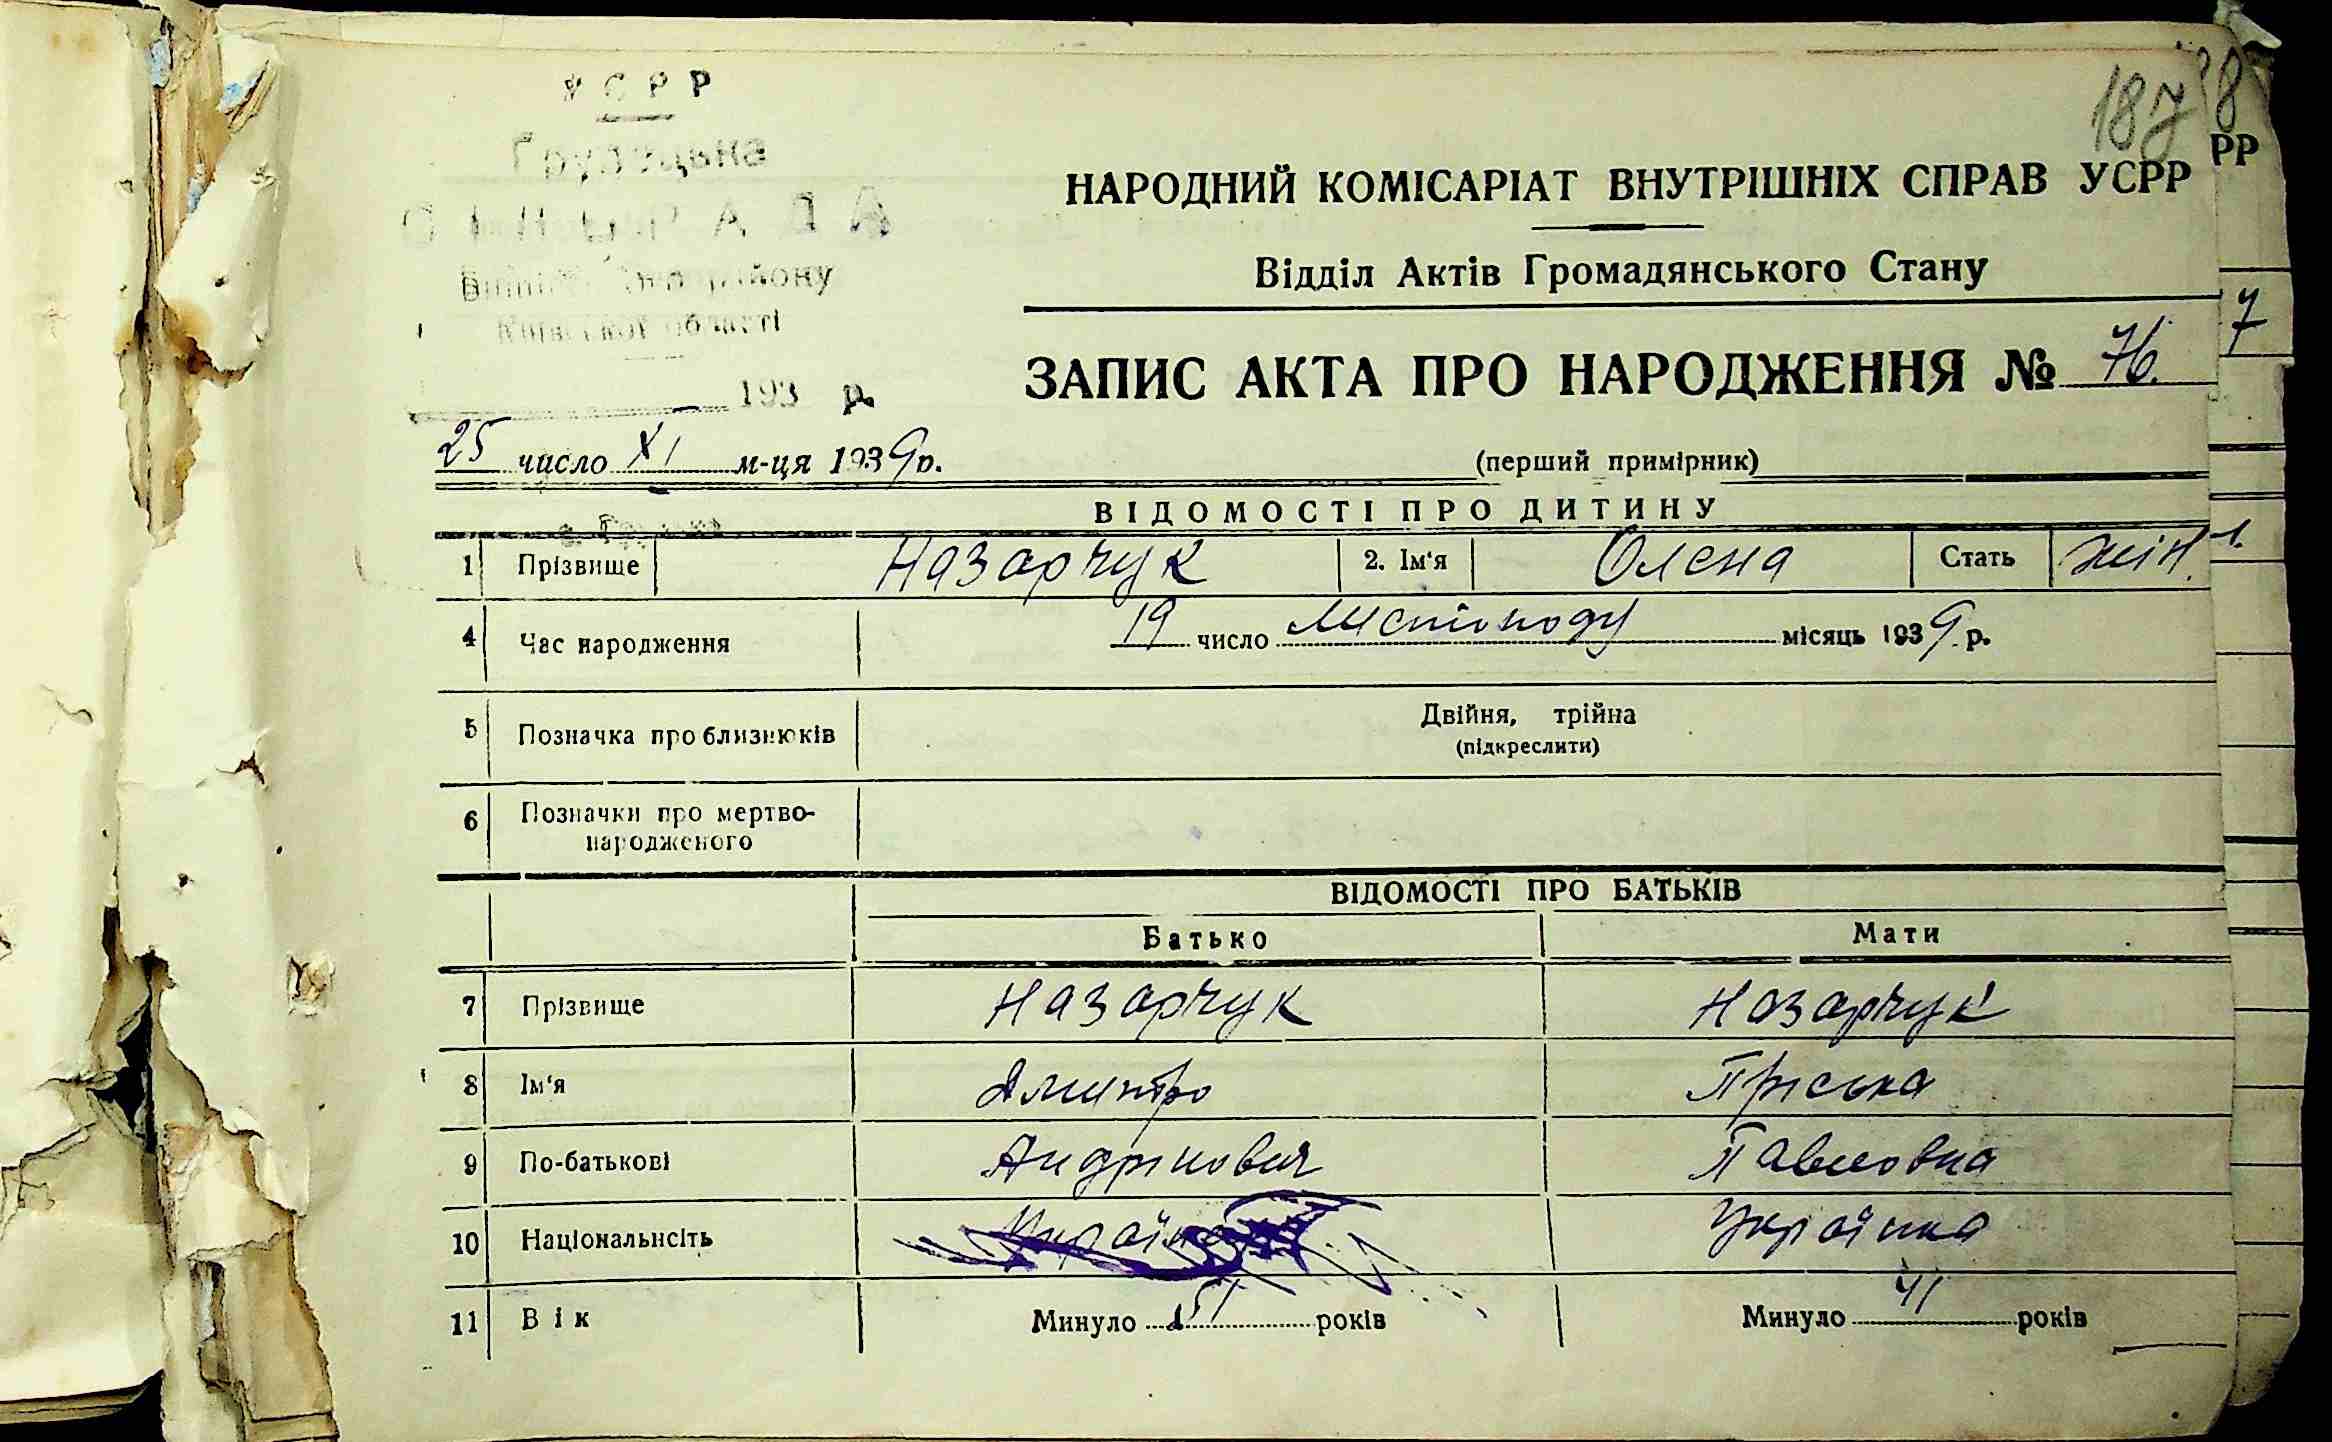 187
8
УСРР
РАДА
району
області
193 р.
НАРОДНИЙ КОМІСАРІАТ ВНУТРІШНІХ СПРАВ УСРР
РР
Відділ Актів Громадянського Стану
7
ЗАПИС АКТА ПРО НАРОДЖЕННЯ № 76.
25 число XI м-ця 1939 р.
(перший примірник)
ВІДОМОСТІ ПРО ДИТИНУ
1 Прізвище Назарчук 2. Ім'я Олена Стать жін.
4 Час народження 19 число листопаду місяць 1939 р.
5 Позначка про близнюків Двійня, трійна
(підкреслити)
6 Позначки про мертво-
народженого
ВІДОМОСТІ ПРО БАТЬКІВ
Батько Мати
7 Прізвище Назарчук Назарчук
8 Ім'я Дмитро Пріська
9 По-батькові Андрінович Павловна
10 Національнсіть Українка
11 Вік Минуло 51 років Минуло 41 років